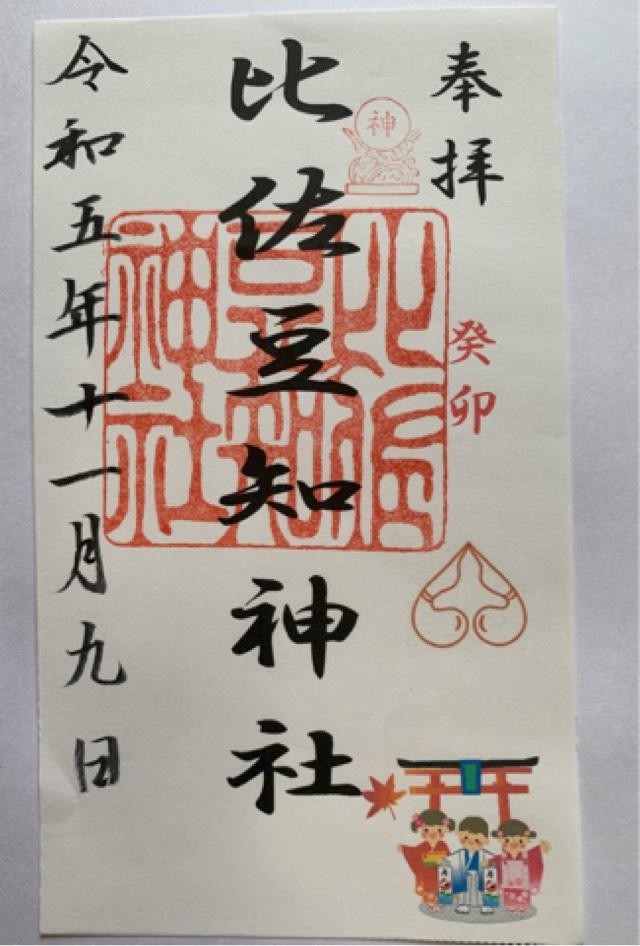 奉拝
神
癸卯
比佐豆知神社
比佐豆知神社
令和五年十一月九日